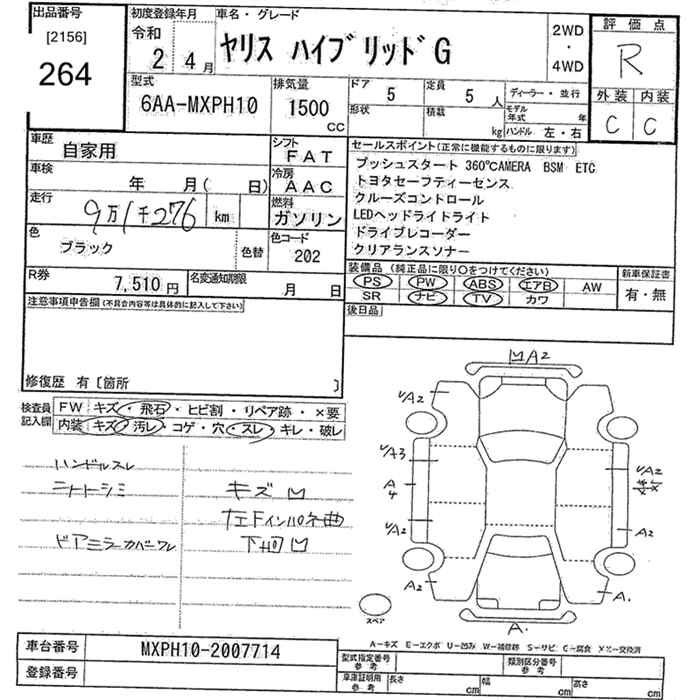 出品番号
[2156]
264
初度登録年月
令和
2 4月
車名・グレード
ヤリス ハイブリッドG
2WD
・
4WD
評価点
R
外装 内装
C C
型式
6AA-MXPH10
排気量
1500
CC
ドア
5
定員
5 人
形状
積載
kg
ディーラー・並行
モデル年式 年
ハンドル 左・右
車歴
自家用
シフト
FAT
車検
年 月( 日)
冷房
AAC
走行
9万1千276 km
燃料
ガソリン
色
ブラック
色替
色コード
202
R券
7,510円
名変通知期限
月 日
セールスポイント(正常に機能するものに限ります)
プッシュスタート 360℃AMERA BSM ETC
トヨタセーフティーセンス
クルーズコントロール
LEDヘッドライトライト
ドライブレコーダー
クリアランスソナー
装備品(純正品に限り○をつけてください)
PS PW ABS エアB AW
SR ナビ TV カワ
新車保証書
有・無
後日品
注意事項申告欄(不具合内容等は具体的に記入して下さい)
修復歴 有〔箇所 〕
検査員記入欄
FW キズ・飛石・ヒビ割・リペア跡・×要
内装 キズ・汚レ・コゲ・穴・スレ・キレ・破レ
ハンドルスレ
ニナトーシミ
キズ凹
左Fインパネ曲
ドアミラーカバーワレ
下回凹
凹A2
A2
A3
A
4
A2
A2
A2
A2
A.
A.
スペア
A-キズ E-エクボ U-凹み W-補修跡 S-サビ C-腐食 X X-交換済
車台番号
MXPH10-2007714
登録番号
型式指定番号
参考
類別区分番号
参考
車庫証明用
参考
長さ cm
幅 cm
高さ cm